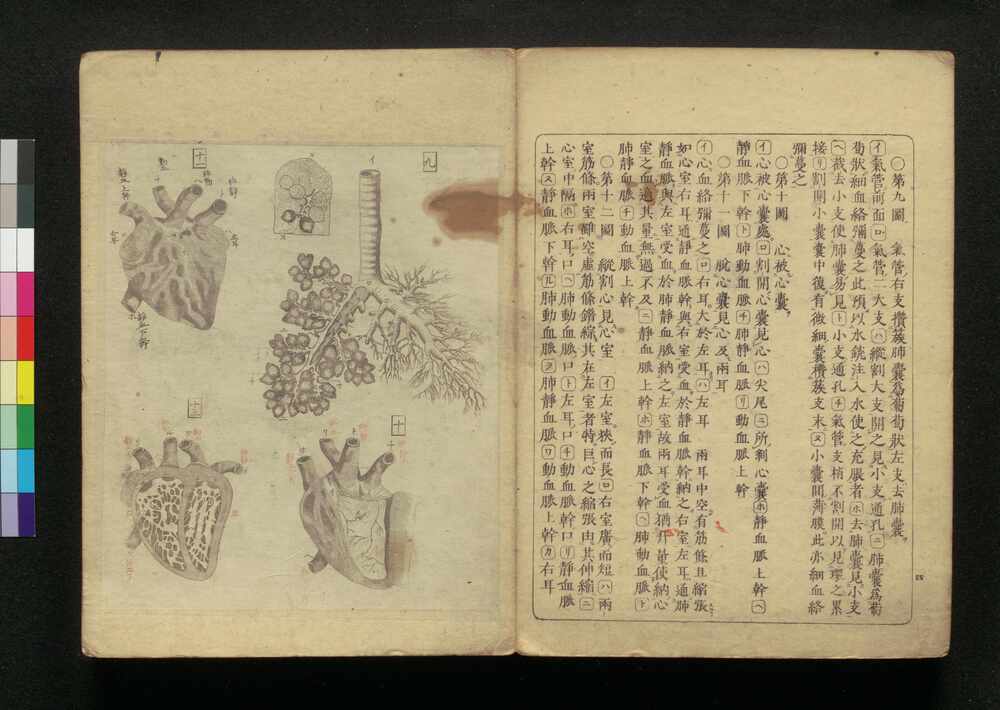 〇第九圖　氣管右支攢蔟肺囊爲葡萄狀左支去肺囊
㋑氣管前面㋺氣管二大支㋩縱割大支開之見小支通孔㊁肺囊爲葡
萄狀細血絡彌蔓之此預以水銃注入水使之充脹者㋭去肺囊見小支
㋬截去小支使肺囊易見㋣小支通孔㋠氣管支梢不割開以見
接㋷割開小囊囊中復有微細囊攢蔟支末㋦小囊間薄膜此亦細血絡
彌蔓之
〇第十圖　心被心囊
㋑心被心囊處㋺割開心囊見心㋩尖尾㊁所剩心囊㋭靜血脈上幹㋬
靜血脈下幹㋣肺動血脈㋠肺靜血脈㋷動血脈上幹
〇第十一圖　脫心囊見心及兩耳
㋑心血絡彌蔓之㋺右耳大於左耳㋩左耳　兩耳中空有筋條且縮張
如心室右耳通靜血脈幹與右室受血於靜血脈幹納之右室左耳通肺
靜血脈與左室受血於肺靜血脈納之左室故兩耳受血猶升量使納心
室之血適其量無過不及㊁靜血脈上幹㋭靜血脈下幹㋬肺動血脈㋣
肺靜血脈㋠動血脈上幹
〇第十二圖　縱割心見心室　㋑左室狹而長㋺右室廣而短㋩兩
室筋條兩室雖空虛筋條錯綜其在左室者特巨心之縮張由其伸縮㊁
心室中隔㋭右耳口㋬肺動血脈口㋣左耳口㋠動血脈幹口㋷靜血脈
上幹㋦靜血脈下幹㋸肺動血脈㋾肺靜血脈㋻動血脈上幹㋕右耳
九
イ
十一
靜血上幹
靜血下幹
右耳
左耳
十
十二